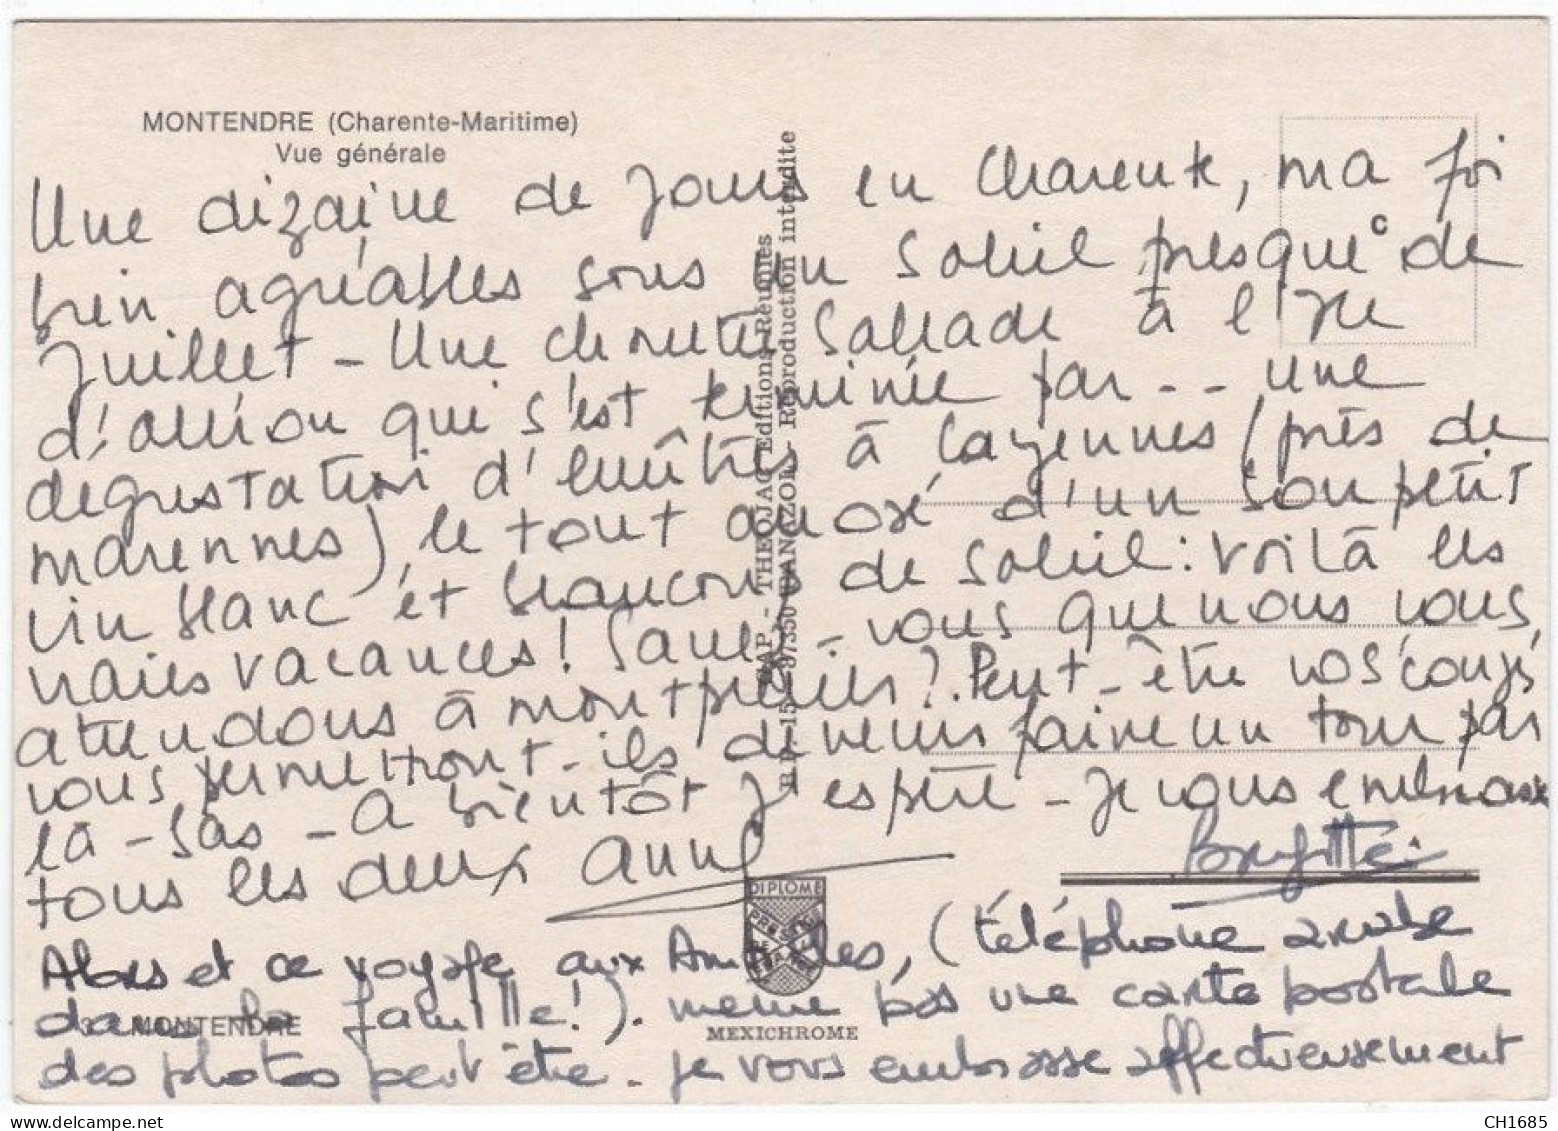 MONTENDRE (Charente-Maritime)
Vue générale
C
Une dizaine de jours en Charente, ma foi
bien agréables sous un soleil presque de
Juillet - Une chouette ballade à l'Ile
d'Oléron qui s'est terminée par -- une
dégustation d'huîtres à Cayennes (près de
marennes) le tout arrosé d'un bon petit
vin blanc et beaucoup de soleil : voilà les
vraies vacances! Savez-vous que nous vous
attendons à Montpellier? Peut-être vos congés
vous permettront-ils de venir faire un tour par
là-bas - A bientôt j'espère - Je vous embrasse
tous les deux Anne
Brigitte
Alors et ce voyage aux Antilles, (téléphone arabe
dans la famille!). même pas une carte postale
des photos peut être. je vous embrasse affectueusement
MONTENDRE
R.P. 15 - 87350 PANAZOL - Reproduction interdite
- THEOJAC Editions Réunies
DIPLOME
PRESTIGE
DE
FRANCE
MEXICHROME
CH1685